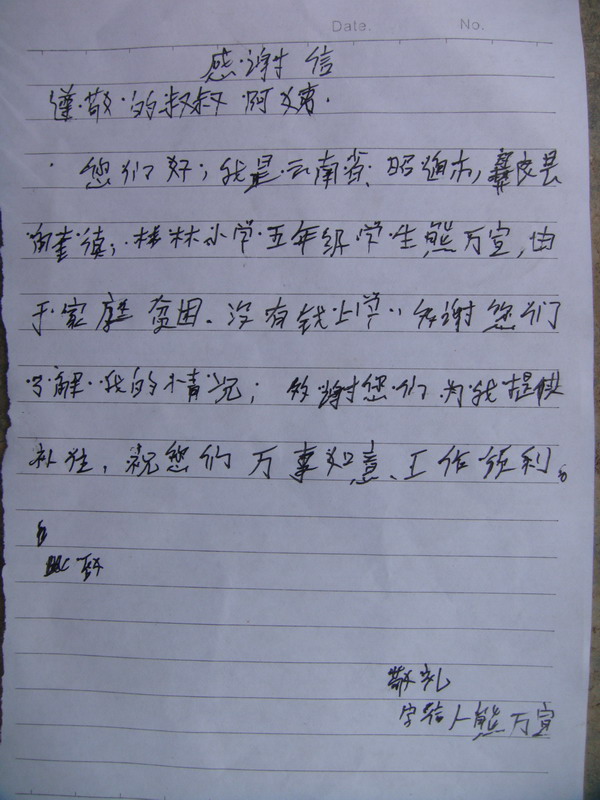 Date. No.
感谢信
谨敬的叔叔阿姨.
您们好;我是云南省、昭通市,彝良县
奎镇;林小学五年级学生熊万宣,由
于家庭贫困、没有钱上学,多谢您们
了解我的情况;多谢您们为我提供
补住,祝您们万事如意、工作顺利。
此致
敬礼
写信人熊万宣